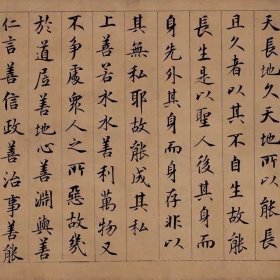 天長地久天地所以能長
且久者以其不自生故能
長生是以聖人後其身而
身先外其身而身存非以
其無私耶故能成其私
上善若水水善利萬物又
不爭處眾人之所惡故幾
於道居善地心善淵與善
仁言善信政善治事善能